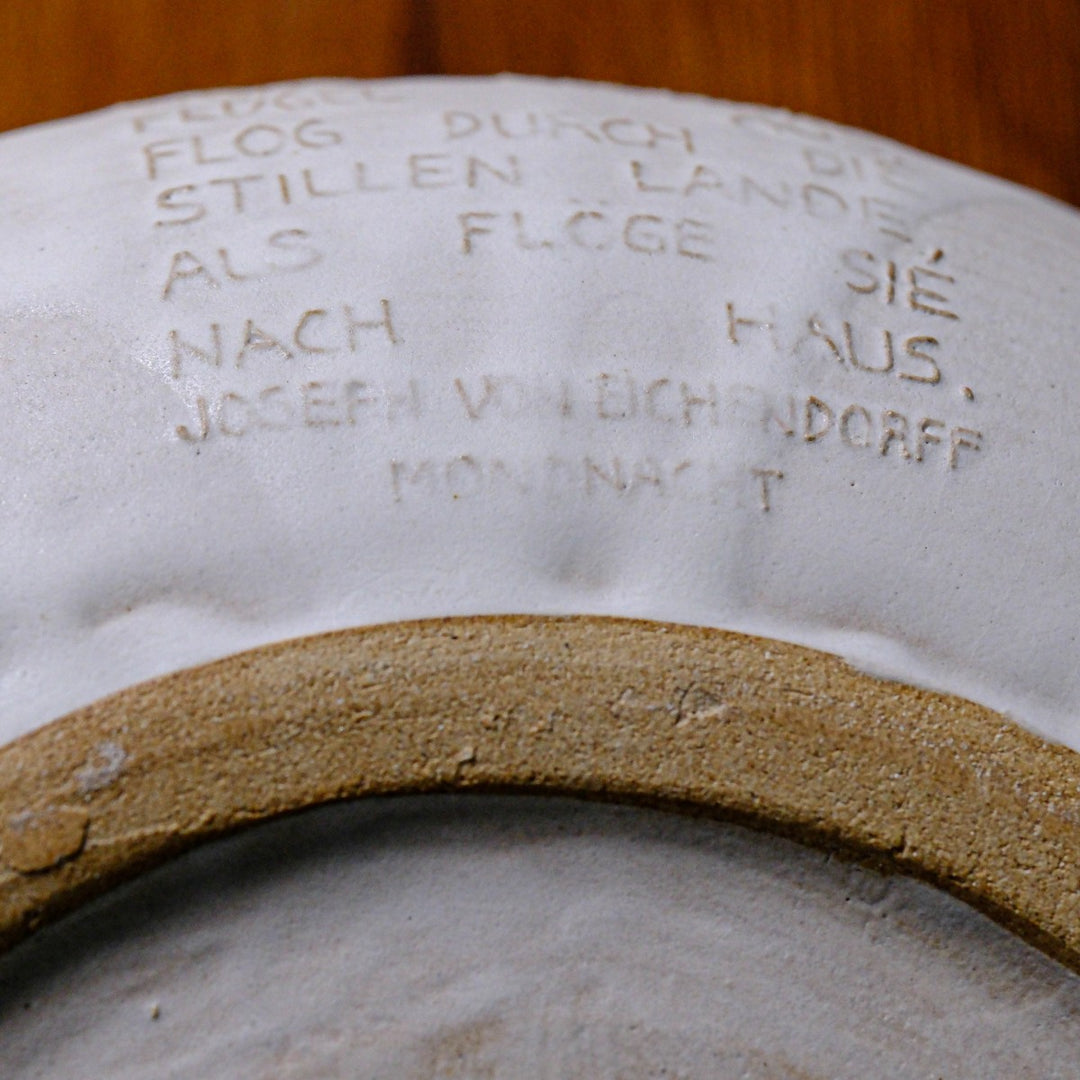 FLÜGEL
FLOG DURCH DIE
STILLEN LANDE,
ALS FLÖGE SIE
NACH HAUS.
JOSEPH VON EICHENDORFF
MONDNACHT